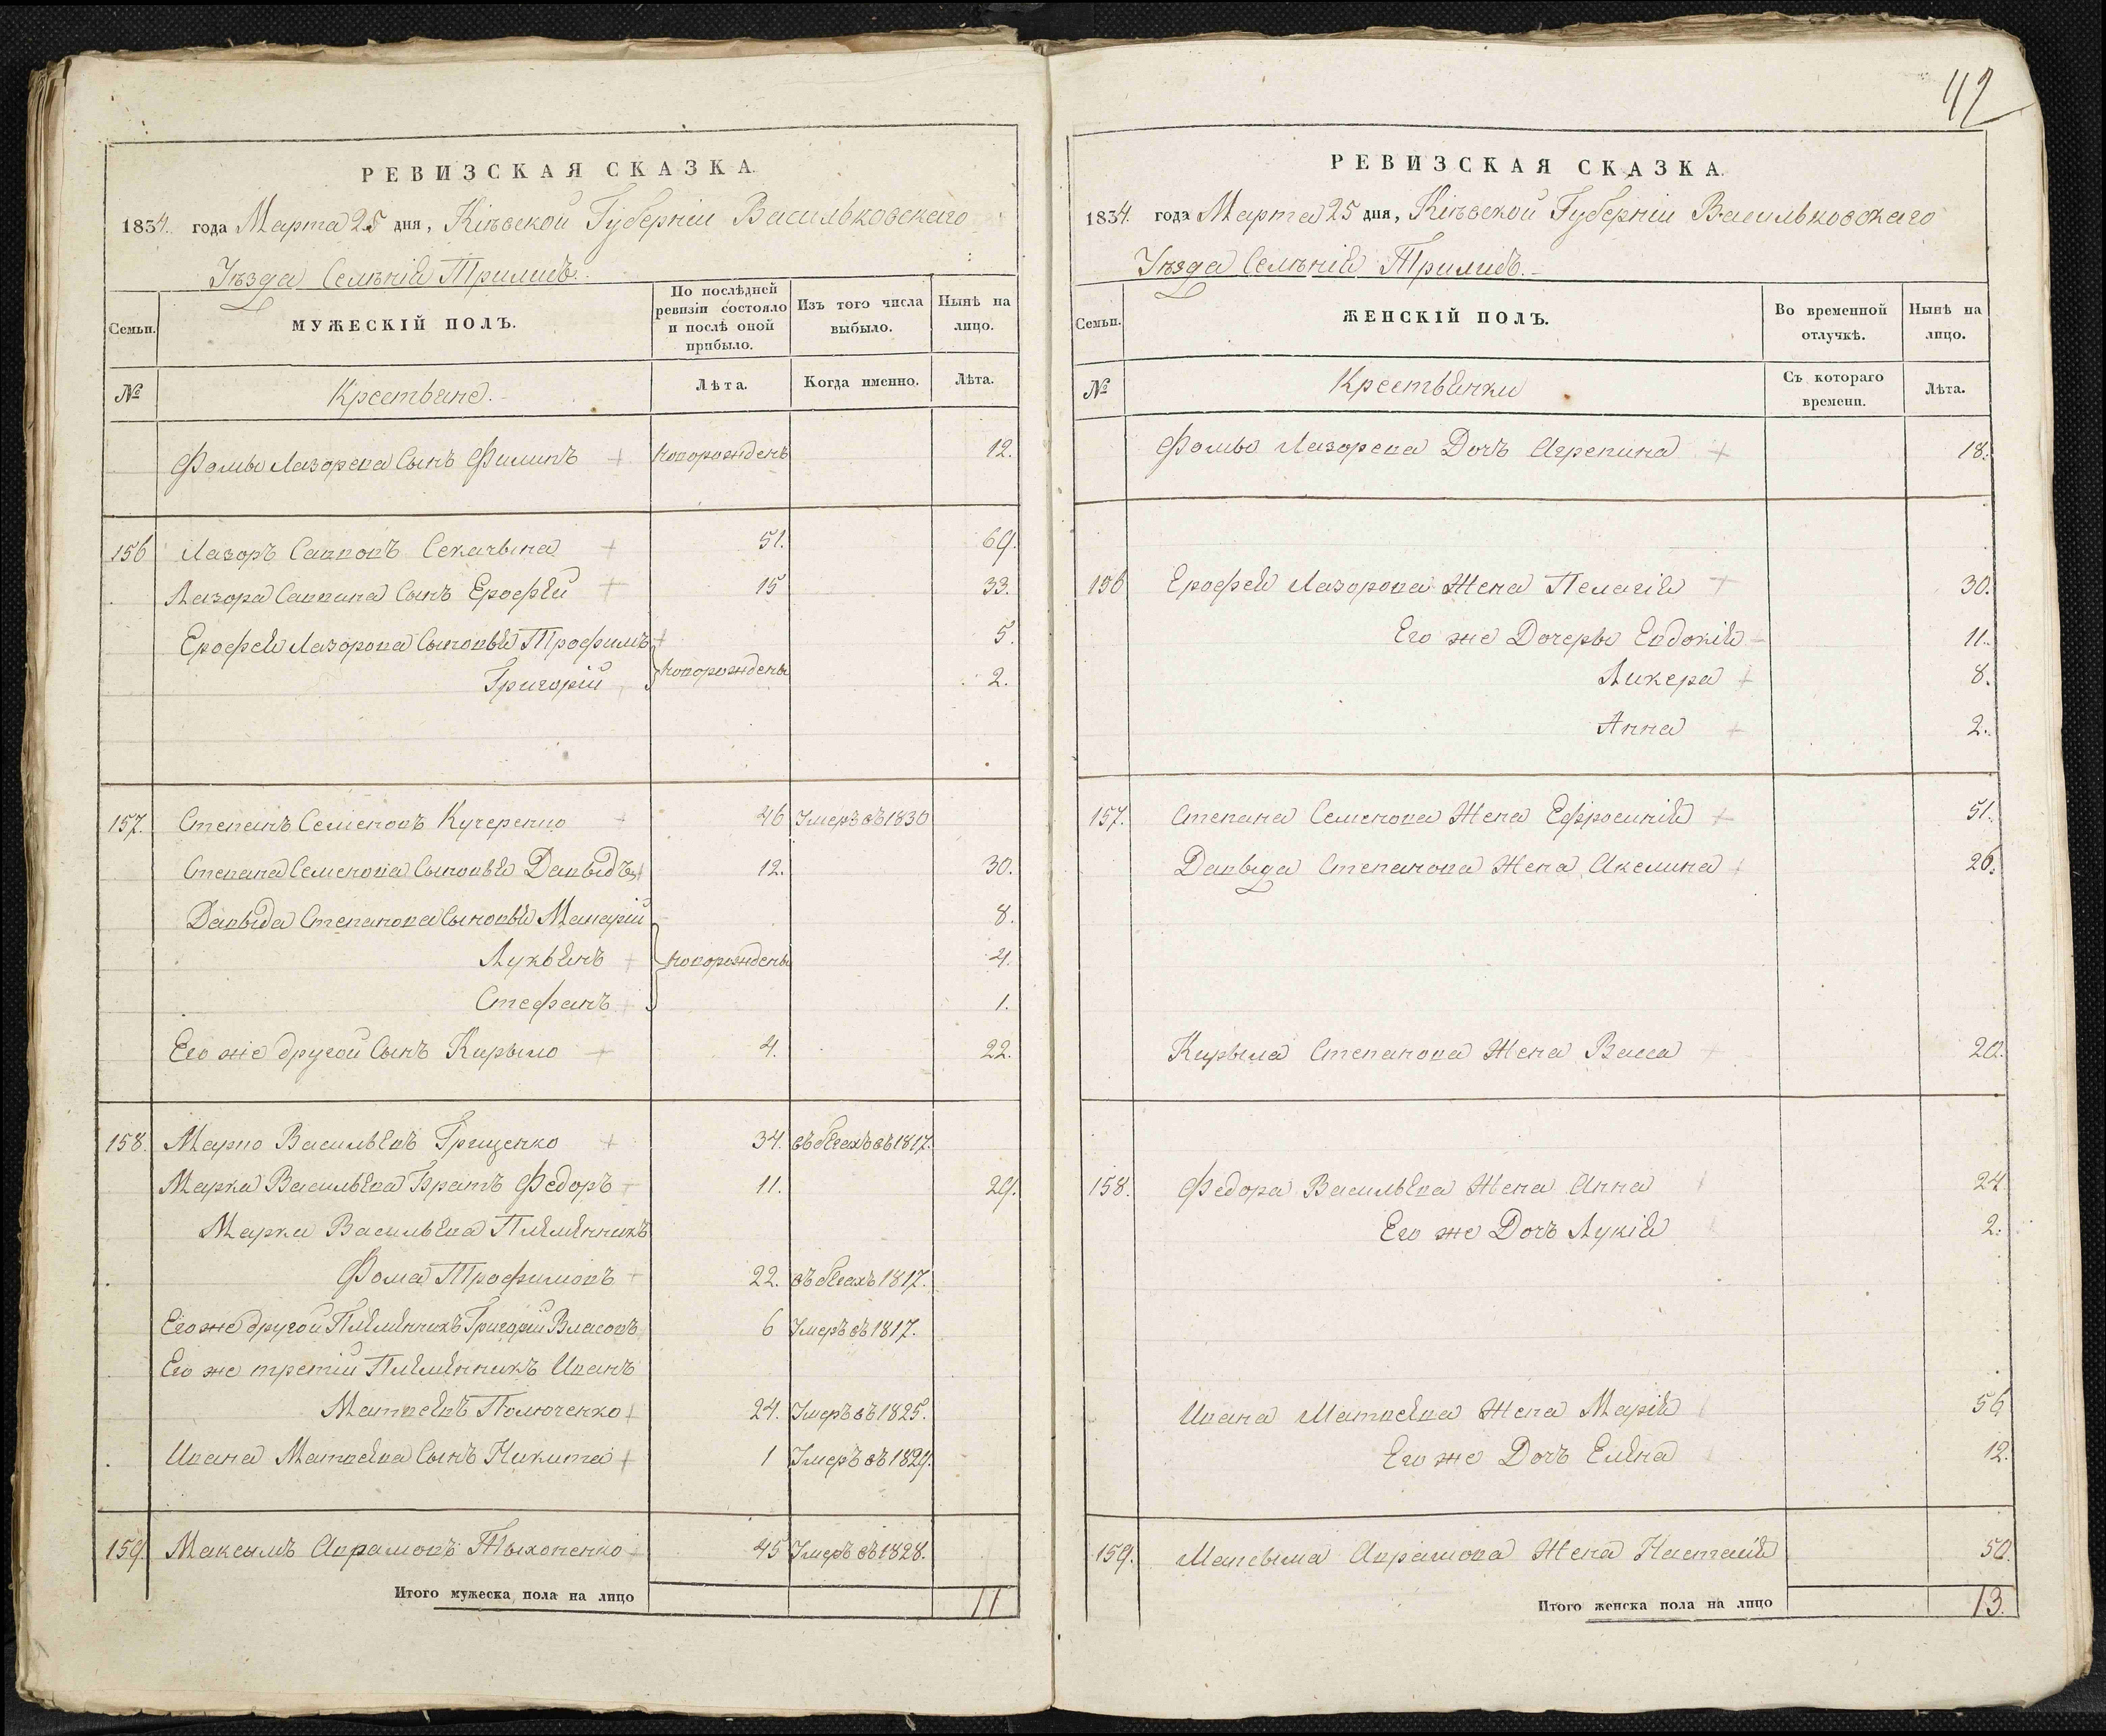 РЕВИЗСКАЯ СКАЗКА.
1834. года Марта 25 дня, Кіевской Губерніи Васильковскаго
Уѣзда Селѣнія Трилисъ.
Семьи.
МУЖЕСКІЙ ПОЛЪ.
По послѣдней ревизіи состояло и послѣ оной прибыло.
Изъ того числа выбыло.
Нынѣ на лицо.
№
Крестьяне.
Лѣта.
Когда именно.
Лѣта.
Фомы Лазорева Сынъ Филипъ + новорожденъ 12.
156 Лазоръ Саввовъ Секачына + 51. 69.
Лазора Саввина Сынъ Ерофѣй + 15 33.
Ерофея Лазорова Сыновья Трофимъ + 5.
Григорій новорождены 2.
157. Степанъ Семеновъ Кучеренко + 46 Умеръ въ 1830
Степана Семенова Сыновья Давыдъ + 12. 30.
Давыда Степанова Сыновья Макарій 8.
Лукьянъ + новорождены 4.
Стефанъ + 1.
Его же другой Сынъ Кирыло + 4. 22.
158. Марко Васильевъ Грищенко + 34. въ бѣгахъ въ 1817.
Марка Васильева Братъ Федоръ + 11. 29.
Марка Васильева Племянникъ
Фома Трофимовъ + 22. въ бѣгахъ 1817.
Его же другой Племянникъ Григорій Власовъ 6 Умеръ въ 1817.
Его же третій Племянникъ Иванъ
Матвеевъ Полюченко + 24. Умеръ въ 1825.
Ивана Матвеева Сынъ Никита + 1 Умеръ въ 1829.
159. Максымъ Аврамовъ Тыхоненко + 45 Умеръ въ 1828.
Итого мужеска пола на лицо 11
42
РЕВИЗСКАЯ СКАЗКА.
1834. года Марта 25 дня, Кіевской Губерніи Васильковскаго
Уѣзда Селѣнія Трилисъ.
Семьи.
ЖЕНСКІЙ ПОЛЪ.
Во временной отлучкѣ.
Нынѣ на лицо.
№
Крестьянки
Съ котораго времени.
Лѣта.
Фомы Лазорева Дочь Агрепина + 18.
156 Ерофея Лазорова Жена Пелагія + 30.
Его же Дочеры Евдокія 11.
Ликера + 8.
Анна + 2.
157. Степана Семенова Жена Ефросинія + 51.
Давыда Степанова Жена Акелина + 26.
Кирыла Степанова Жена Васса + 20.
158. Федора Васильева Жена Анна 24
Его же Дочь Лукія 2.
Ивана Матвеева Жена Марія 56
Его же Дочь Елена 12.
159. Максыма Аврамова Жена Настасія 50.
Итого женска пола на лицо 13.